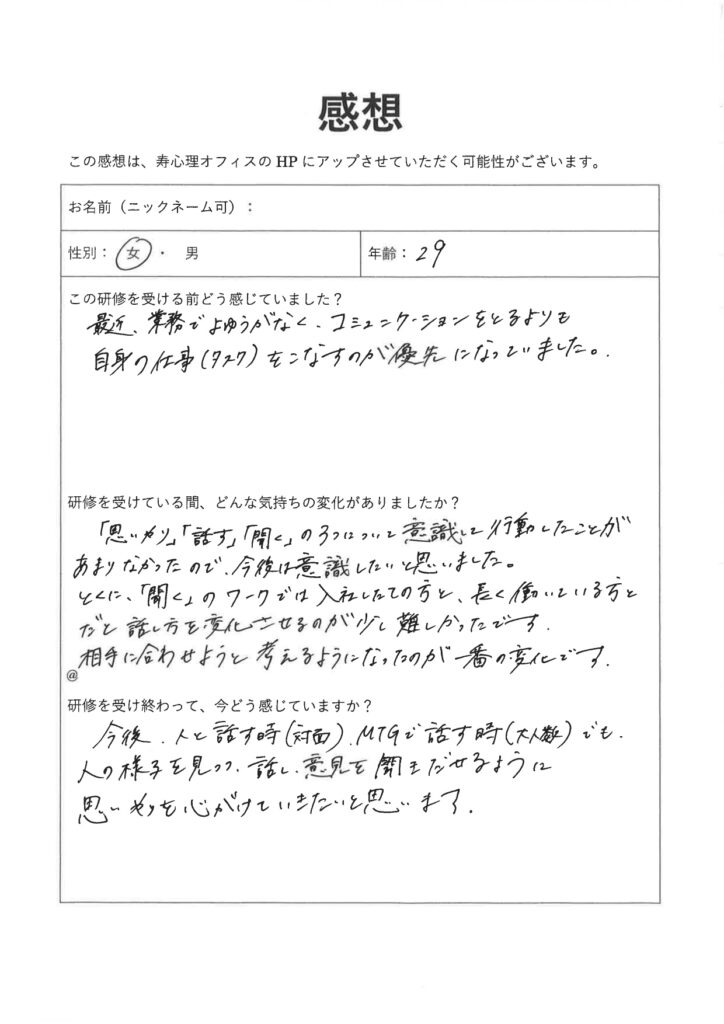 感想
この感想は、寿心理オフィスの HP にアップさせていただく可能性がございます。
お名前（ニックネーム可）：
性別： 女 ・ 男
年齢： 29
この研修を受ける前どう感じていました？
最近、業務でよゆうがなく、コミュニケーションをとるよりも
自身の仕事（タスク）をこなすのが優先になっていました。
研修を受けている間、どんな気持ちの変化がありましたか？
「思いやり」「話す」「聞く」の3つについて意識して行動したことが
あまりなかったので、今後は意識したいと思いました。
とくに、「聞く」のワークでは入社したての方と、長く働いている方と
だと話し方を変化させるのが少し難しかったです。
相手に合わせようと考えるようになったのが一番の変化です。
@
研修を受け終わって、今どう感じていますか？
今後、人と話す時（対面）、MTGで話す時（大人数）でも、
人の様子を見つつ、話し、意見を聞きだせるように
思いやりを心がけていきたいと思います。